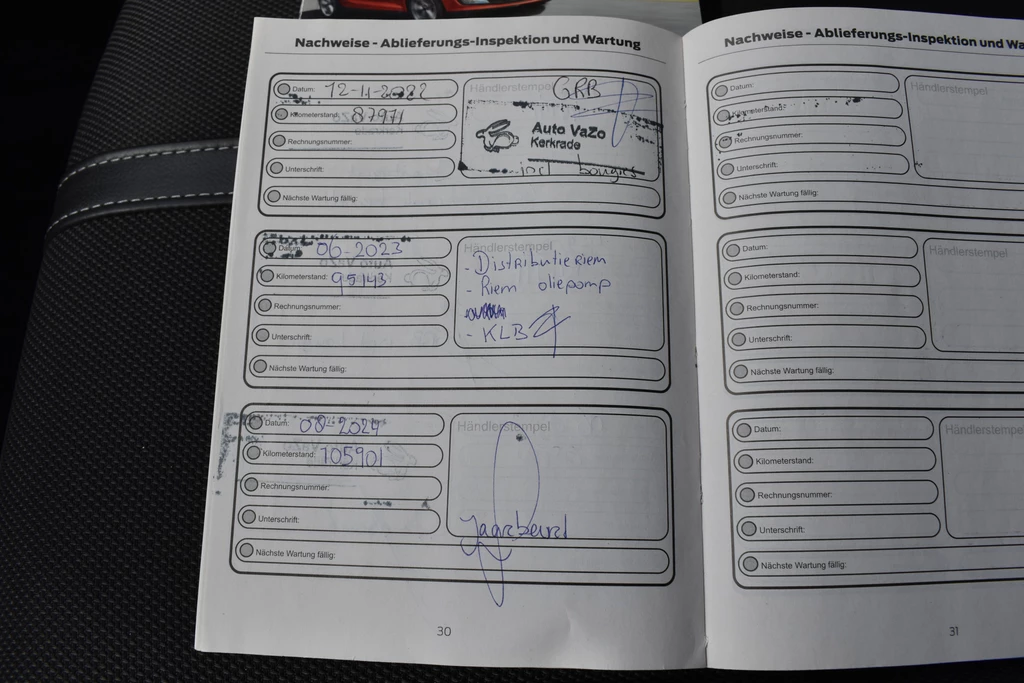 Nachweise - Ablieferungs-Inspektion und Wartung
Datum: 12-11-2022
Kilometerstand: 87971
Rechnungsnummer:
Unterschrift:
Nächste Wartung fällig:
Händlerstempel
GRB
Auto VaZo
Kerkrade
incl bougies
Datum: 06-2023
Kilometerstand: 95143
Rechnungsnummer:
Unterschrift:
Nächste Wartung fällig:
Händlerstempel
- Distributie Riem
- Riem oliepomp
- KLB
Datum: 08-2024
Kilometerstand: 105901
Rechnungsnummer:
Unterschrift:
Nächste Wartung fällig:
Händlerstempel
30
Nachweise - Ablieferungs-Inspektion und Wa
Datum:
Kilometerstand:
Rechnungsnummer:
Unterschrift:
Nächste Wartung fällig:
Händlerstempel
Datum:
Kilometerstand:
Rechnungsnummer:
Unterschrift:
Nächste Wartung fällig:
Händlerstempel
Datum:
Kilometerstand:
Rechnungsnummer:
Unterschrift:
Nächste Wartung fällig:
Händlerstempe
31